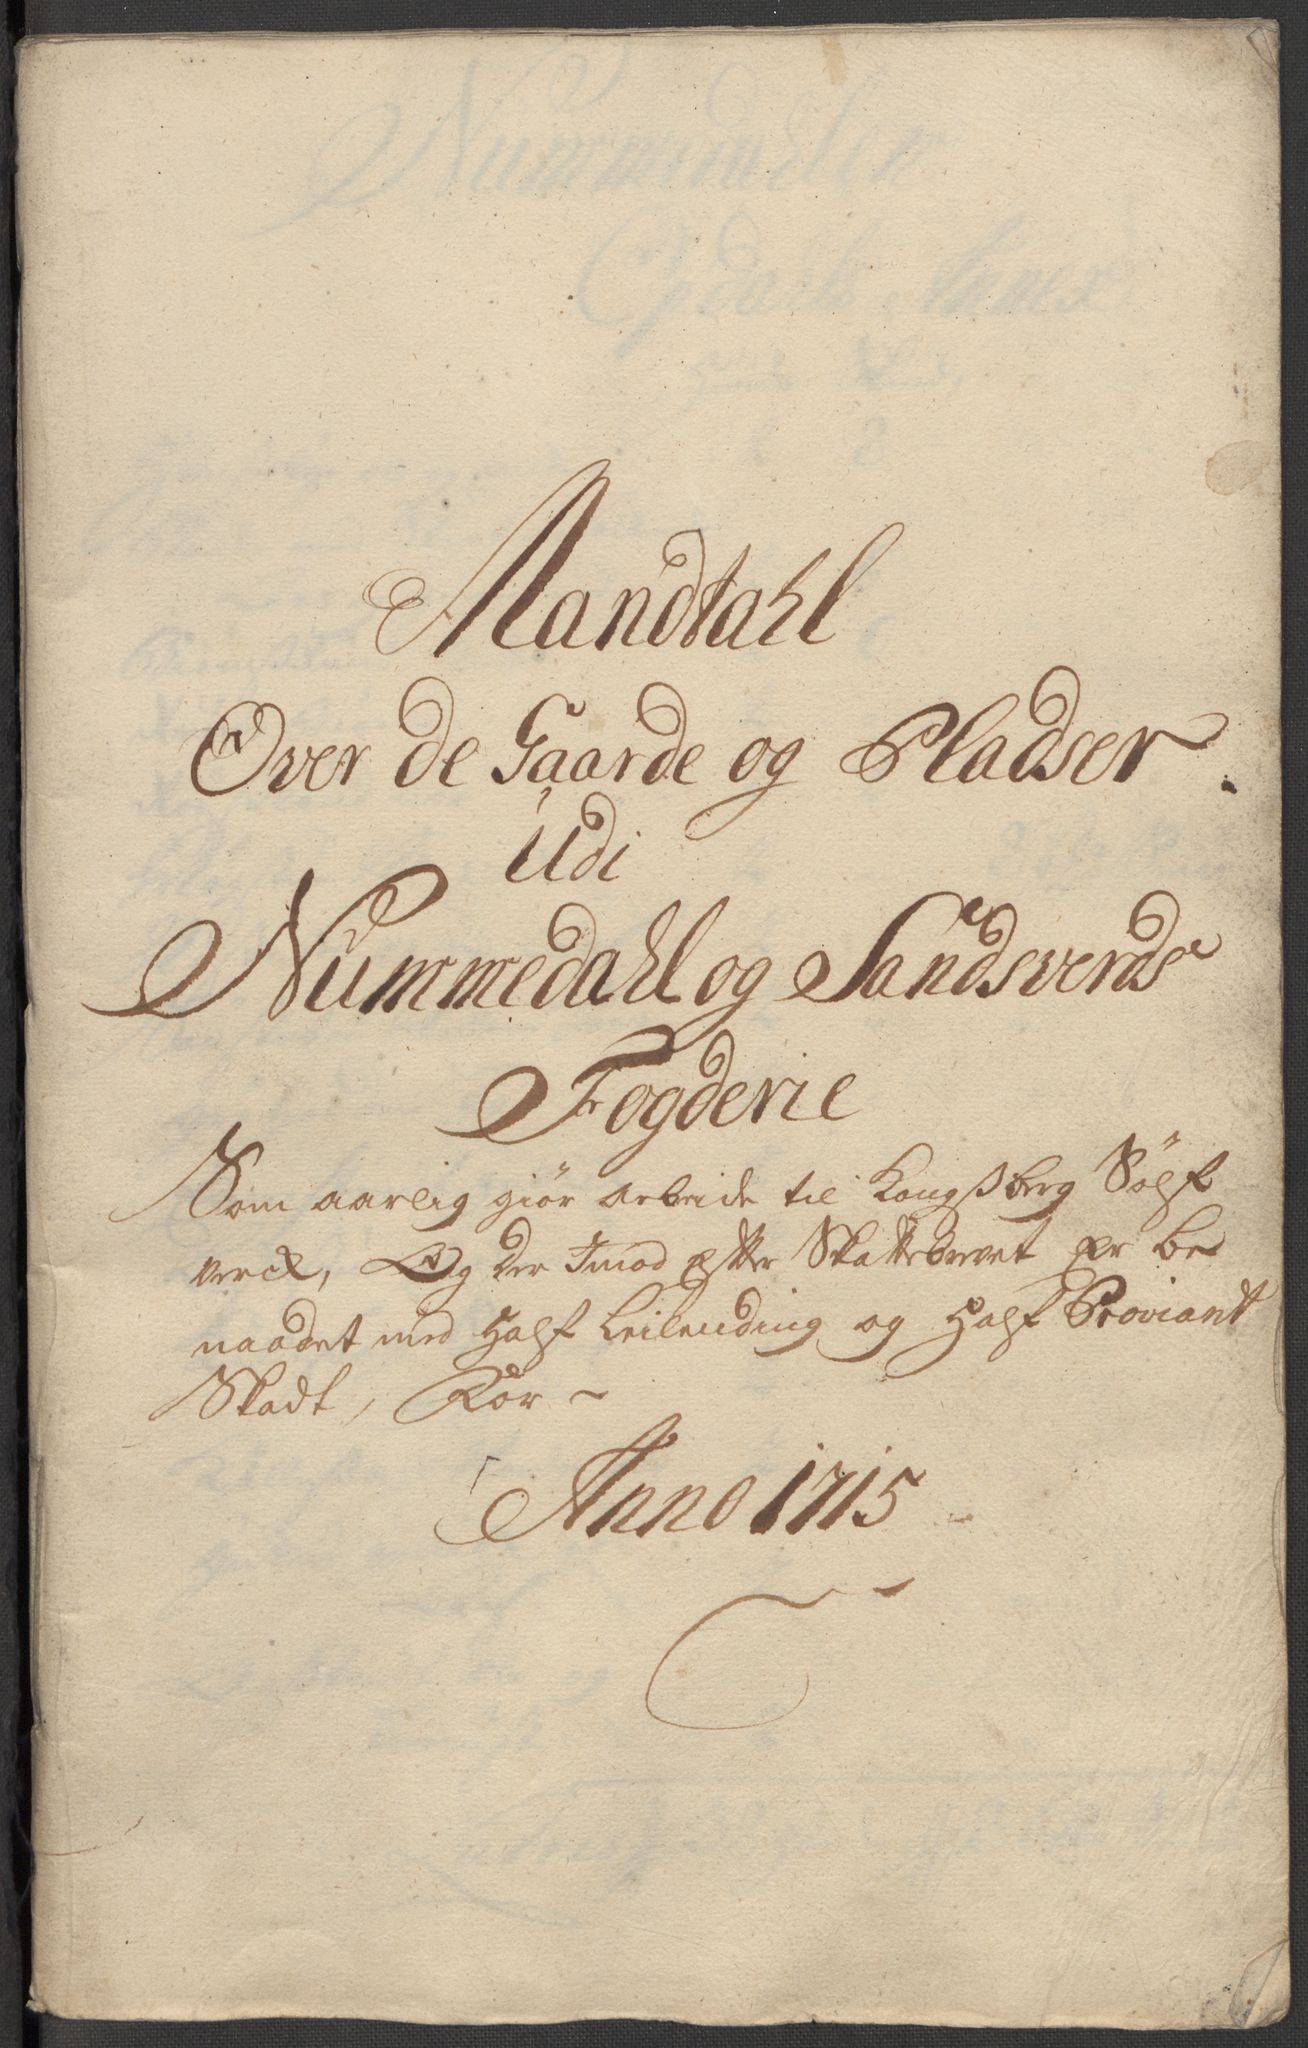 Mandtahl
Over de Gaarde og Pladser
Udi
Nummedahl og Sandsverds
Fogderie
Som aarlig giør arbeide til Kongsberg Sølf
verck, Og der Imod efter Skattebrevet er be
naadet med Half Leilending og Half Proviant
Skadt, For
Anno 1715